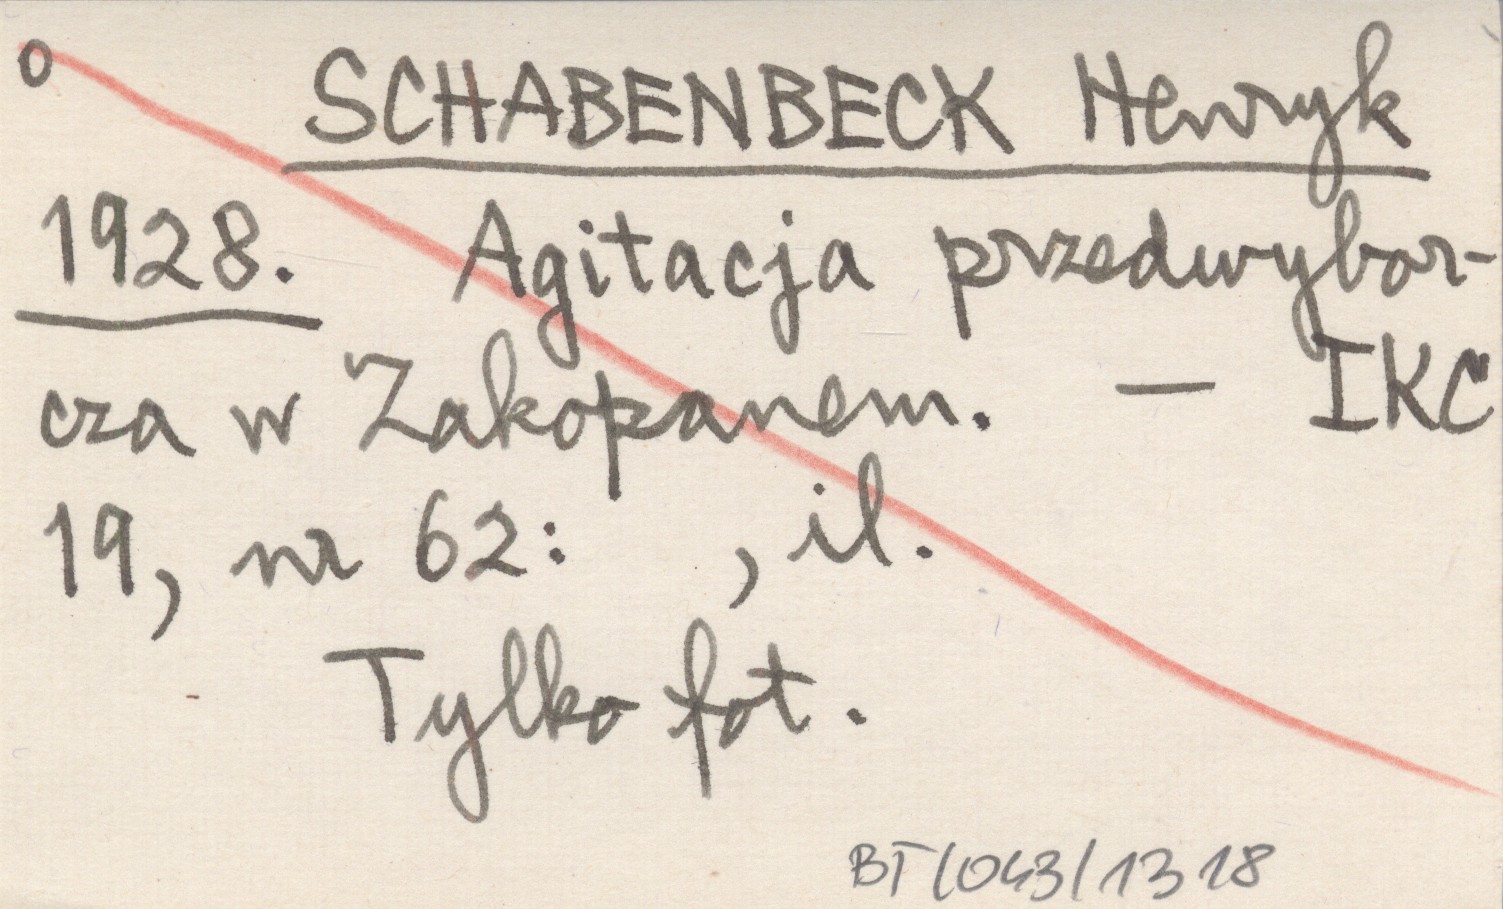 o SCHABENBECK Henryk
1928. Agitacja przedwybor-
cza w Zakopanem. — IKC
19, nr 62: , il.
Tylko fot.
BT/043/1318